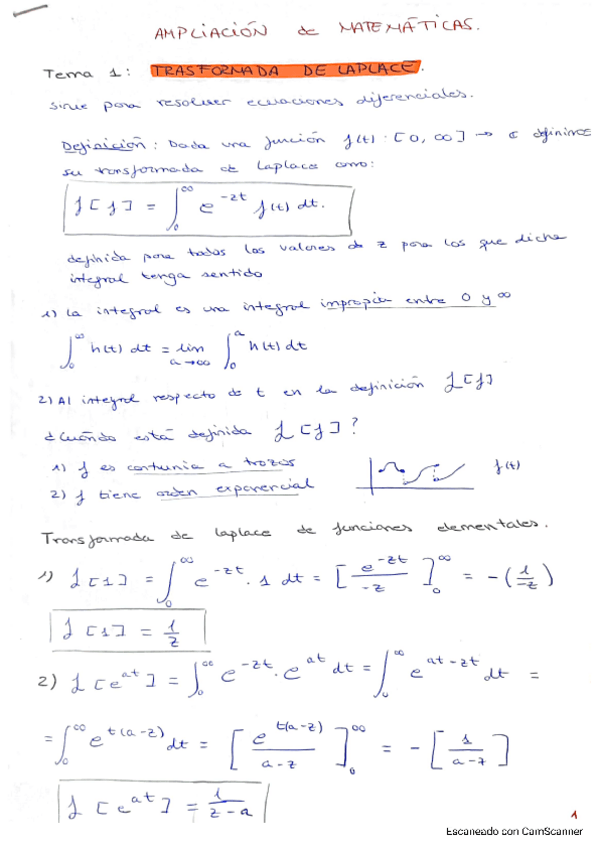 AMPLIACIÓN de MATEMÁTICAS.
Tema 1: TRASFORMADA DE LAPLACE.
Sirve para resolver ecuaciones diferenciales.
Definición: Dada una función f(t): [0, ∞] → ℂ definimos
su transformada de Laplace como:
L[f] = ∫₀^∞ e^{-zt} f(t) dt.
definida para todos los valores de z para los que dicha
integral tenga sentido
1) La integral es una integral impropia entre 0 y ∞
∫₀^∞ h(t) dt = lim_{a→∞} ∫₀^a h(t) dt
2) Al integral respecto de t en la definición L[f]
¿Cuándo está definida L[f]?
1) f es contunia a trozos
f(t)
2) f tiene orden exponencial
Transformada de laplace de funciones elementales.
1) L[1] = ∫₀^∞ e^{-zt} · 1 dt = [e^{-zt}/-z]₀^∞ = -(1/-z)
L[1] = 1/z
2) L[e^{at}] = ∫₀^∞ e^{-zt} · e^{at} dt = ∫₀^∞ e^{at-zt} dt =
= ∫₀^∞ e^{t(a-z)} dt = [e^{t(a-z)}/a-z]₀^∞ = -[1/a-z]
L[e^{at}] = 1/z-a
1
Escaneado con CamScanner